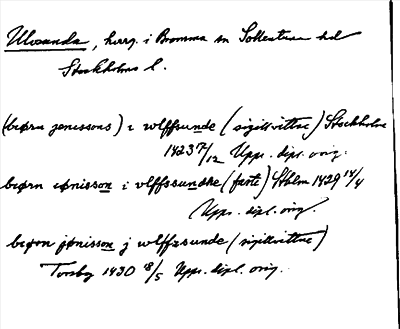 Ulvsunda, herrg. i Bromma sn Sollentuna hd
Stockholms l.
(biørn jønissons) i wlffsunde (sigillvittne) Stockholm
1423 7/12 Upps. dipl. orig.
biørn iønisson i vlffssundhe (faste) Sthlm 1429 14/4
Upps. dipl. orig.
biøron jønisson j wlffzsunde (sigillvittne)
Torsby 1430 18/5 Upps. dipl. orig.